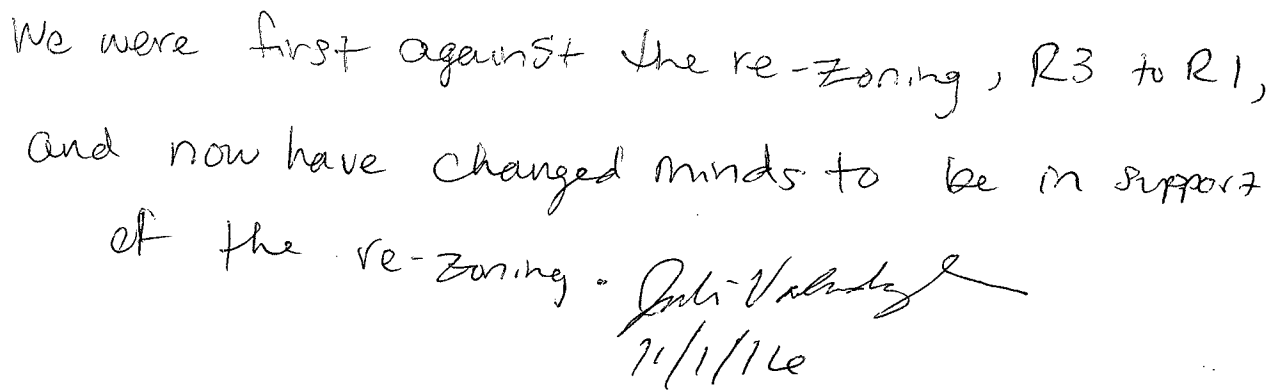 We were first against the re-zoning, R3 to R1,
and now have changed minds to be in support
of the re-zoning.
11/1/16